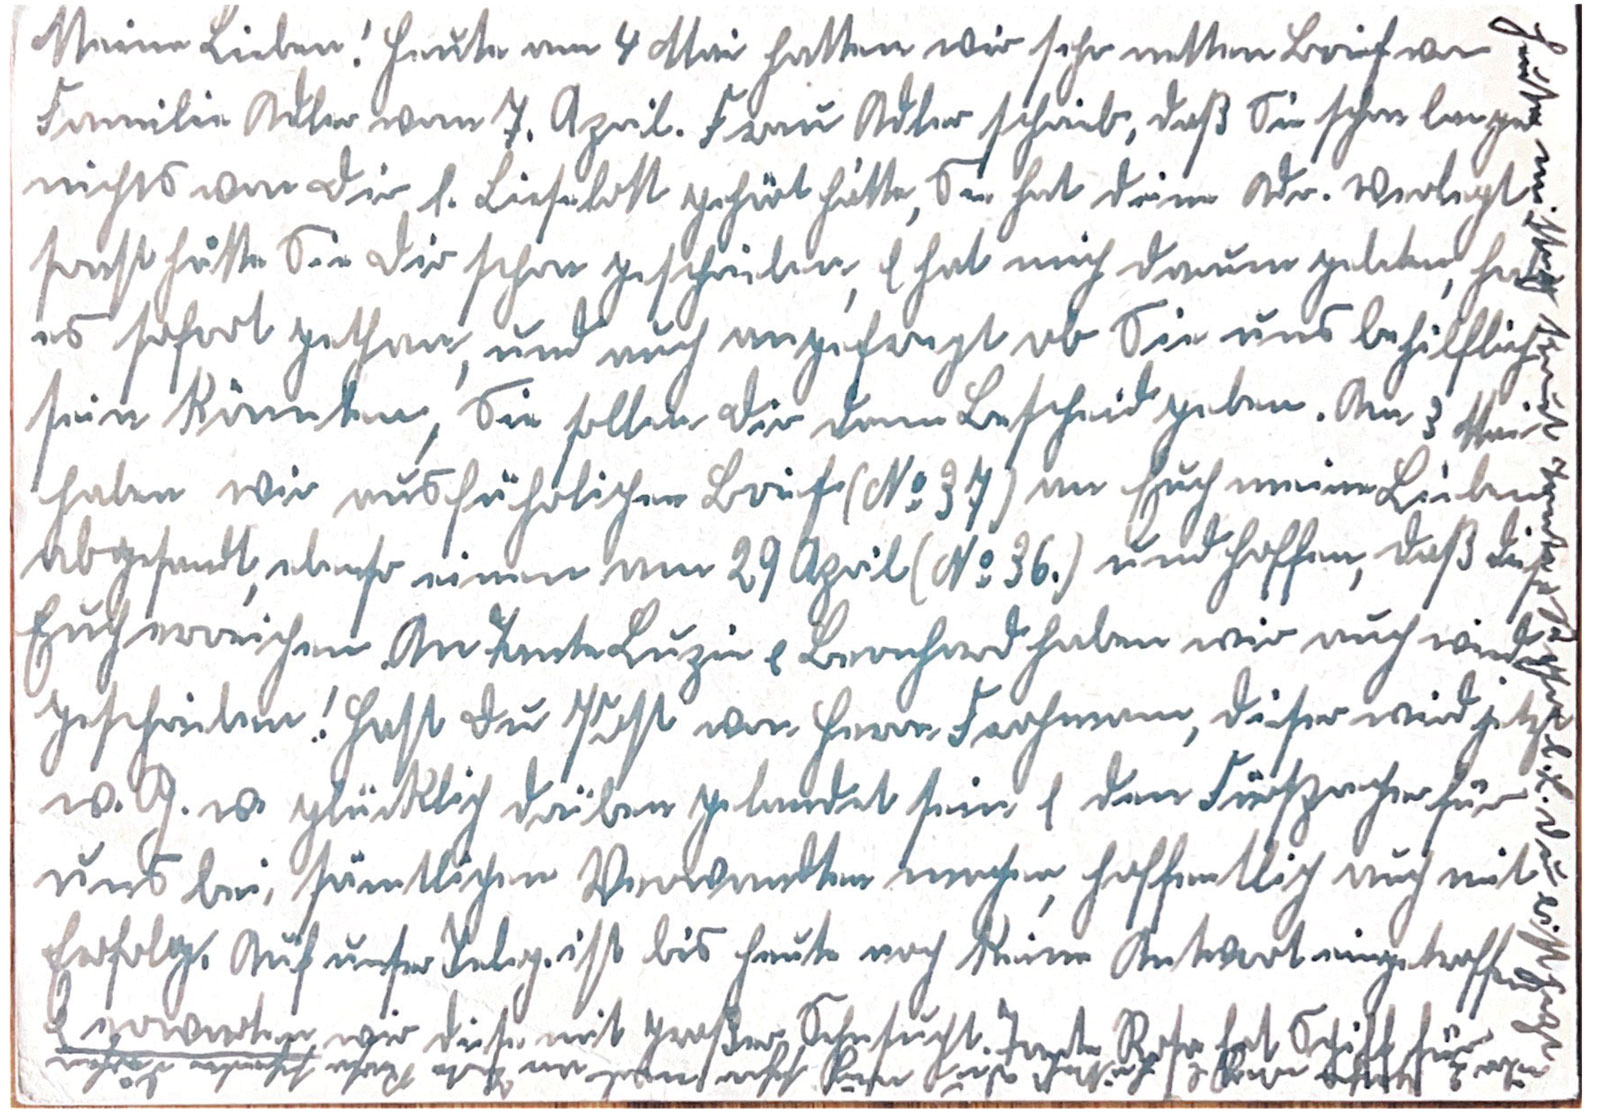 Meine Lieben! Heute am 4 Mai hatten wir sehr netten Brief von
Familie Adler vom 7. April. Frau Adler schrieb, daß Sie schon lange
nichts von Dir l. Lieselott gehört hätte, Sie hat deine Adr. verlegt
sonst hätte Sie Dir schon geschrieben, & hat mich darum gebeten, hab
es sofort gethan, und auch angefragt ob Sie uns behilflich
sein könnten, Sie sollen Dir dann Bescheid geben. Am 3 Mai
haben wir ausführlichen Brief (No 37) an Euch meine Lieben
abgesandt, ebenso einen am 29 April (No 36.) und hoffen, daß diese
Euch erreichen. An Tante Luzie & Bernhard haben wir auch wieder
geschrieben! Hast Du Post von Herrn Frohmann, dieser wird jetzt
w. G. w. glücklich drüben gelandet sein & den Fürsprecher für
uns bei sämtlichen Verwandten machen, hoffentlich auch mit
Erfolg. Auf unser Teleg. ist bis heute noch keine Antwort eingetroffen
& erwarten wir diese mit großer Sehnsucht. Tante Rosa hat Schiff für